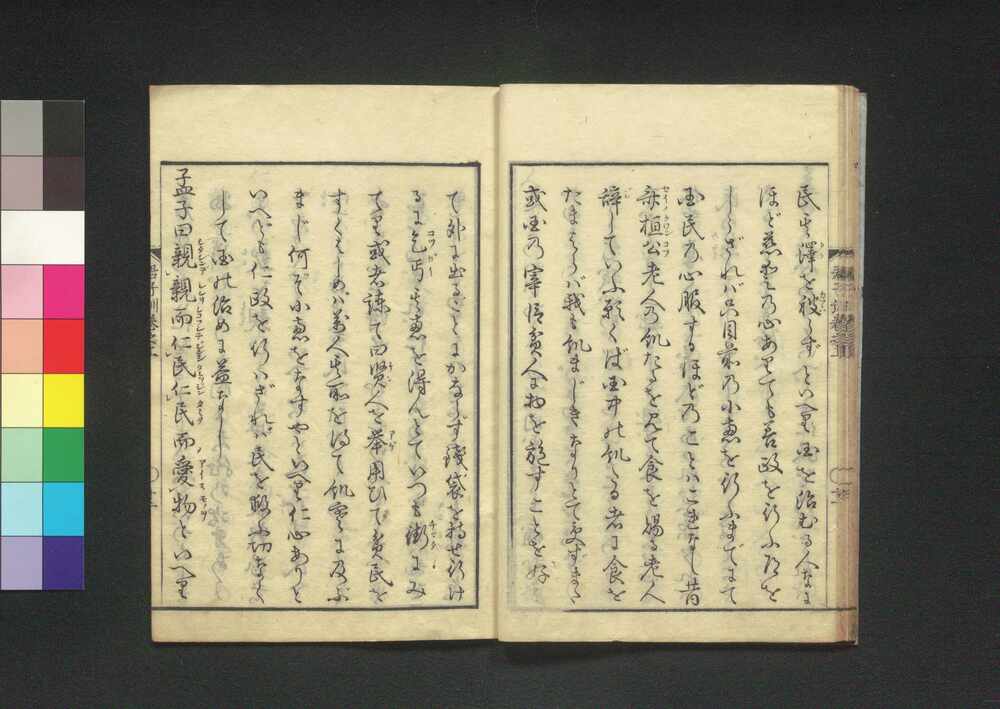 民其澤を被らずといへり国を治むる人なに
ほど慈愛の心ありても善政を行ふ所を
しらざれバ只目前の小恵を行ふまでにて
国民の心服するほどのことハこれなし昔
斉桓公老人の飢たるを見て食を賜る老人
辞していふ願くば国中の飢たる者に食を
たまはらバ我も飢まじきなりとて受ずまた
或国の宰臣貧人に物を施すことを好
て外に出るごとにかならず錢袋を持せ行け
るに乞丐其恵を得んとていつも街にみ
てり或者諫て曰賢人を舉用ひて貧民を
すくはしめハ万人其所を得て飢寒に及ぶ
まじ何ぞ小恵をなすやといへり仁心ありと
いへども仁政を行ハざれバ民を賑ふ切なく
して国の治めに益なし
孟子曰親親而仁民仁民而愛物といへり